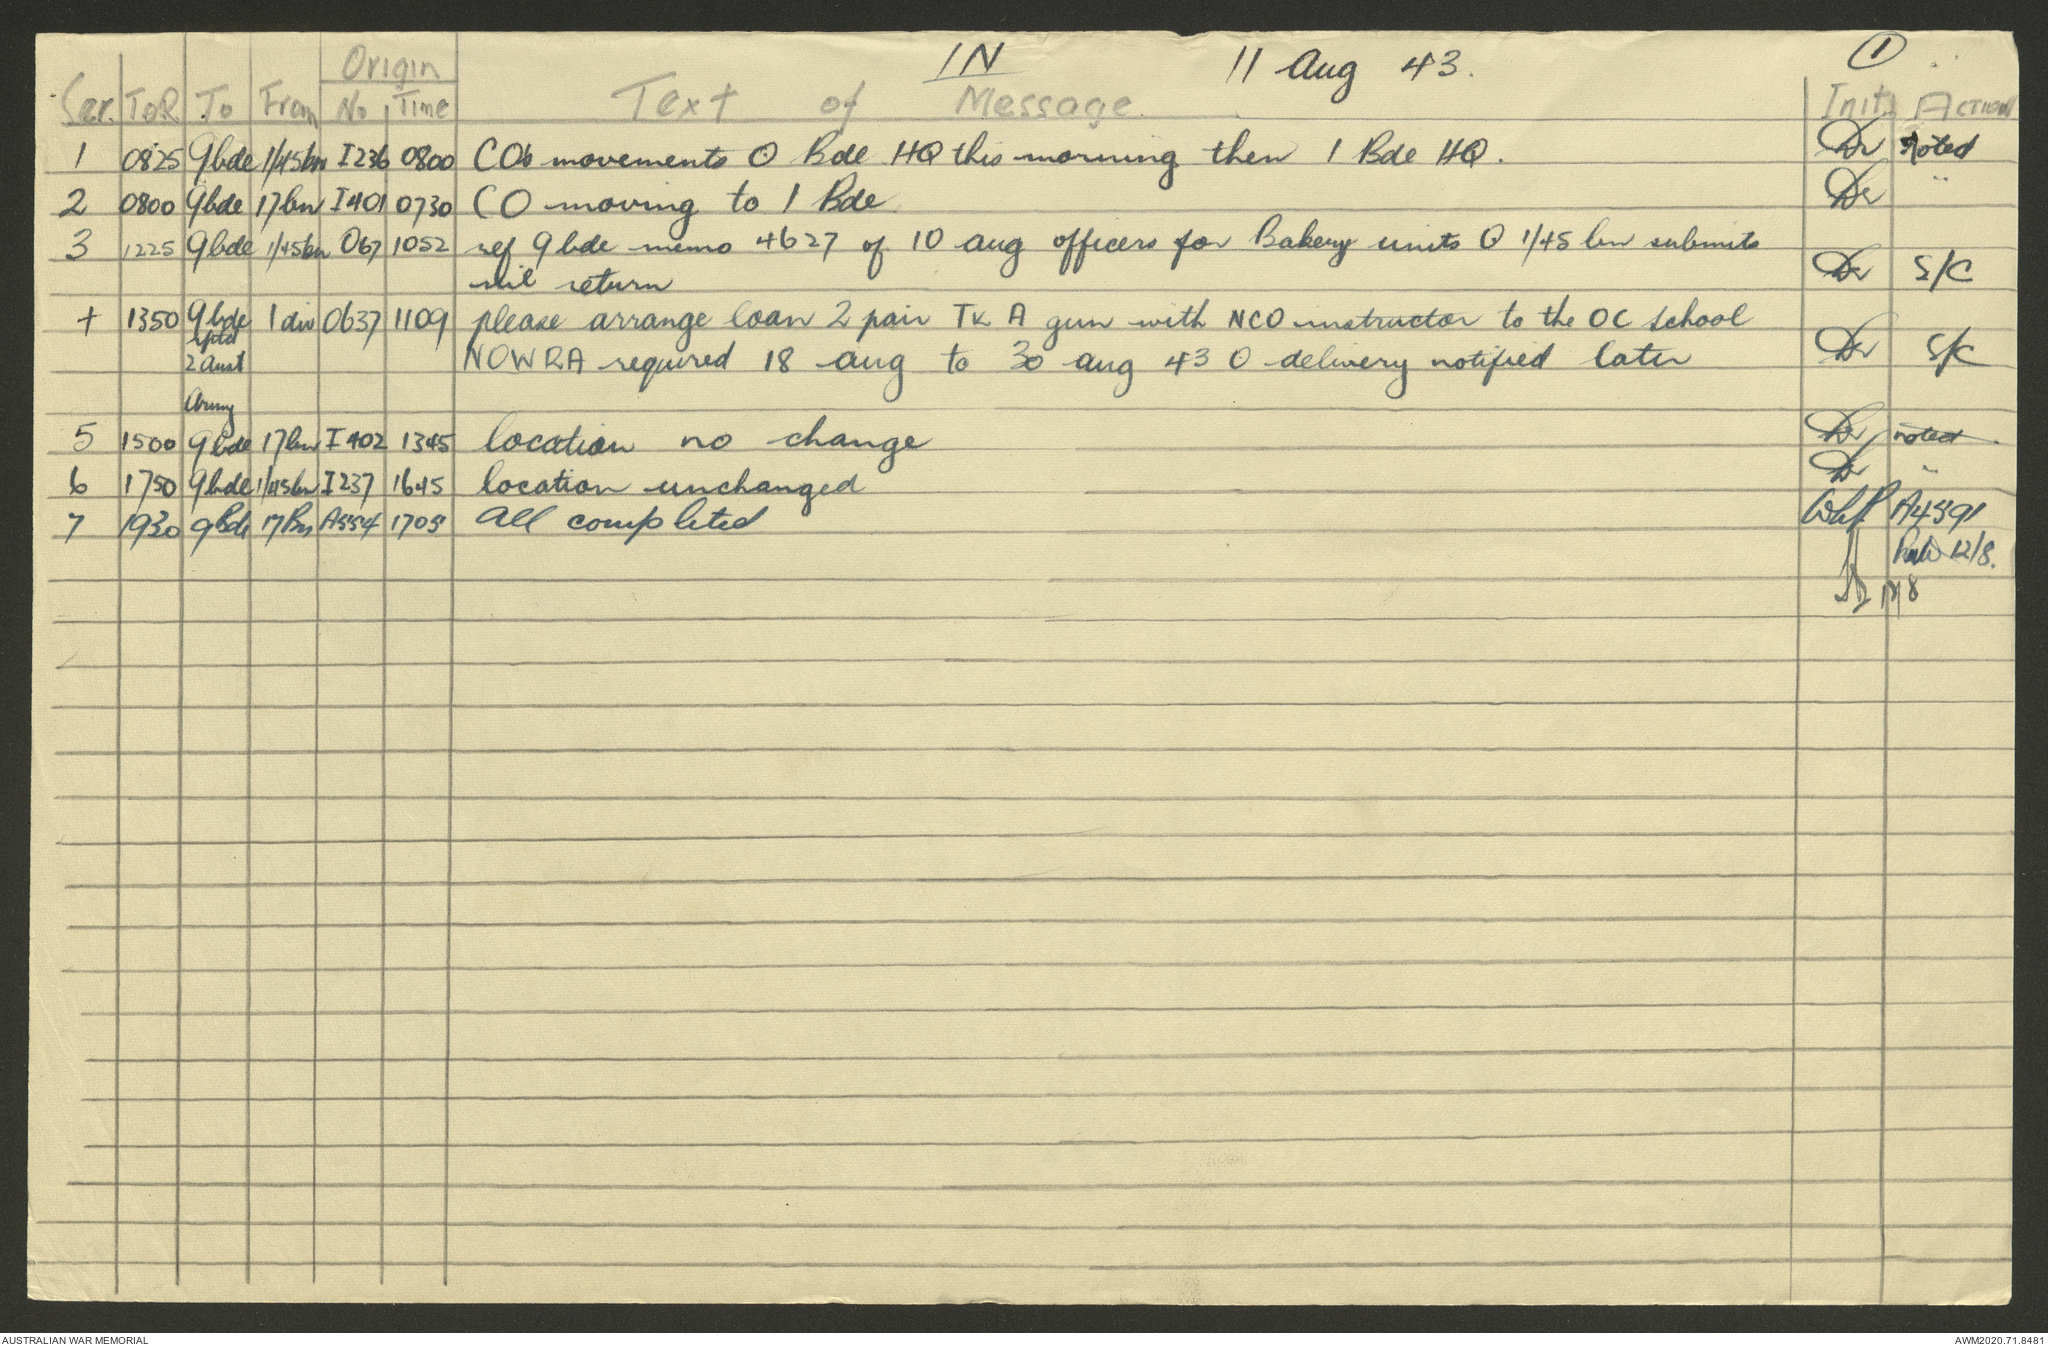 IN 11 Aug 43. 1
Origin
Ser. ToR To From No Time Text of Message Init Action
1 0825 9bde 1/45bn I236 0800 COs movements O Bde HQ this morning then 1 Bde HQ. noted
2 0800 9bde 17bn I401 0730 CO moving to 1 Bde "
3 1225 9bde 1/45bn O67 1052 ref 9 bde memo 4627 of 10 aug officers for Bakery units O 1/45 bn submits
nil return S/C
4 1350 9bde 1 div O637 1109 please arrange loan 2 pair Tk A gun with NCO instructor to the OC school
rptd
2 Aust NOWRA required 18 aug to 30 aug 43 O delivery notified later S/C
Army
5 1500 9bde 17bn I402 1345 location no change noted
6 1750 9bde 1/45bn I237 1645 location unchanged "
7 1930 9Bde 17Bn A554 1705 All completed A4591
12/8.